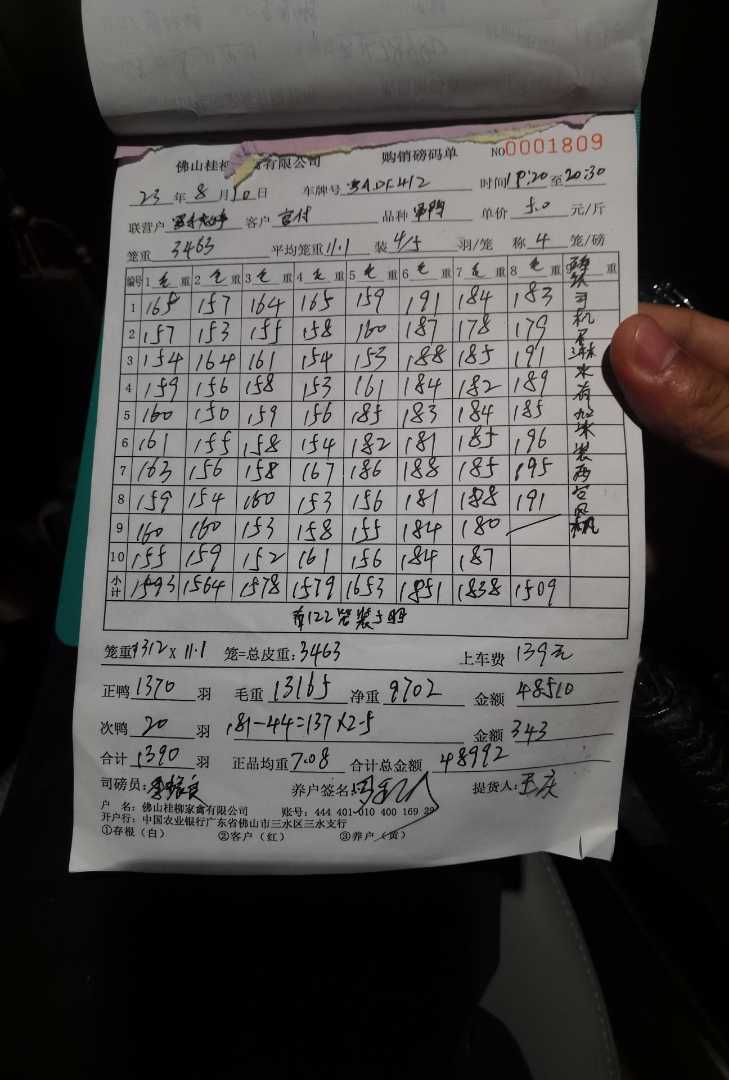 佛山桂柳 禽有限公司 购销磅码单 NO0001809
23年8月10日 车牌号 时间19:20至20:30
联营户 客户 品种 单价 5.0 元/斤
笼重 3463 平均笼重 11.1 装 4/5 羽/笼 称 4 笼/磅
编号 1 毛重 2 毛重 3 毛重 4 毛重 5 毛重 6 毛重 7 毛重 8 毛重 重
1 165 157 164 165 159 191 184 183
2 157 153 155 158 160 187 178 179
3 154 164 161 154 153 188 185 191
4 159 156 158 153 161 184 182 189
5 160 150 159 156 185 183 184 185
6 161 155 158 154 182 181 185 196
7 163 156 158 167 186 188 185 195
8 159 154 160 153 156 181 188 191
9 160 160 153 158 155 184 180
10 155 159 152 161 156 184 187
小计 1593 1564 1578 1579 1653 1851 1838 1509
有122笼装5羽
笼重 312×11.1 笼=总皮重:3463 上车费 139元
正鸭 1370 羽 毛重 13165 净重 9702 金额 48510
次鸭 20 羽 181-44=137×2-5 金额 343
合计 1390 羽 正品均重 7.08 合计总金额 48992
司磅员: 养户签名: 提货人:
户 名:佛山桂柳家禽有限公司 账号:444 401 010 400 169 29
开户行:中国农业银行广东省佛山市三水区三水支行
①存根(白) ②客户(红) ③养户(黄)